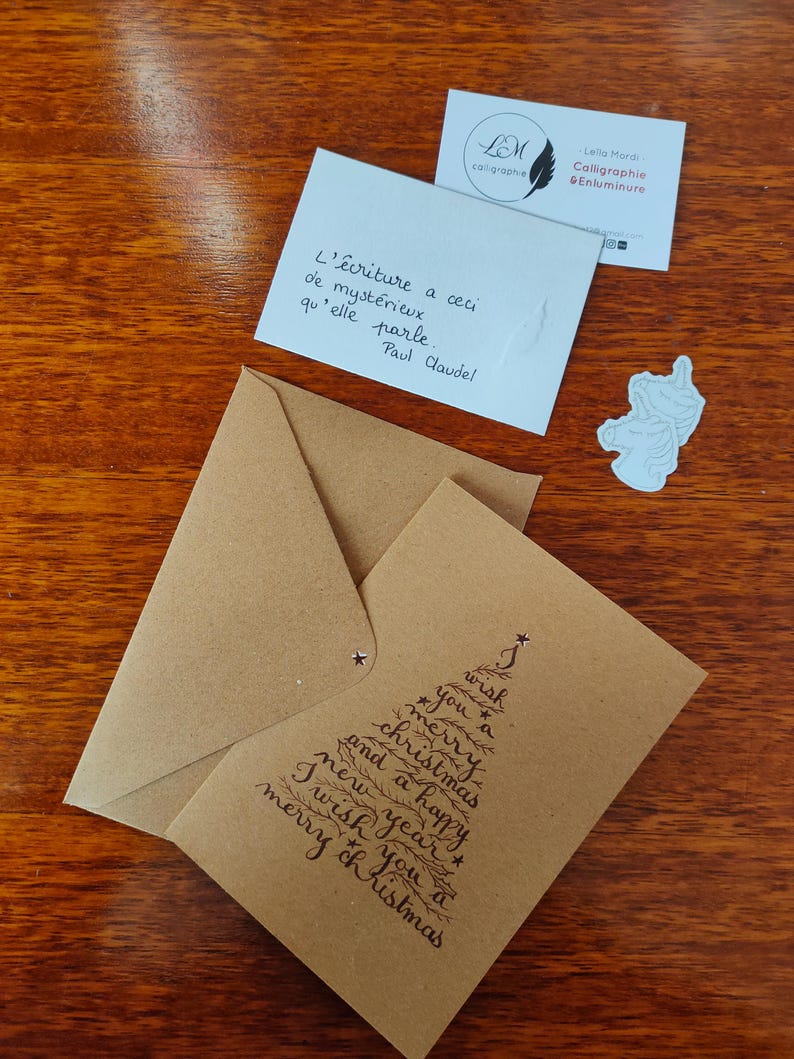 LM
calligraphie
· Leïla Mordi ·
Calligraphie
&Enluminure
12@gmail.com
L'écriture a ceci
de mystérieux
qu'elle parle.
Paul Claudel
I
wish
you a
merry
christmas
and a happy
new year
I wish you a
merry christmas